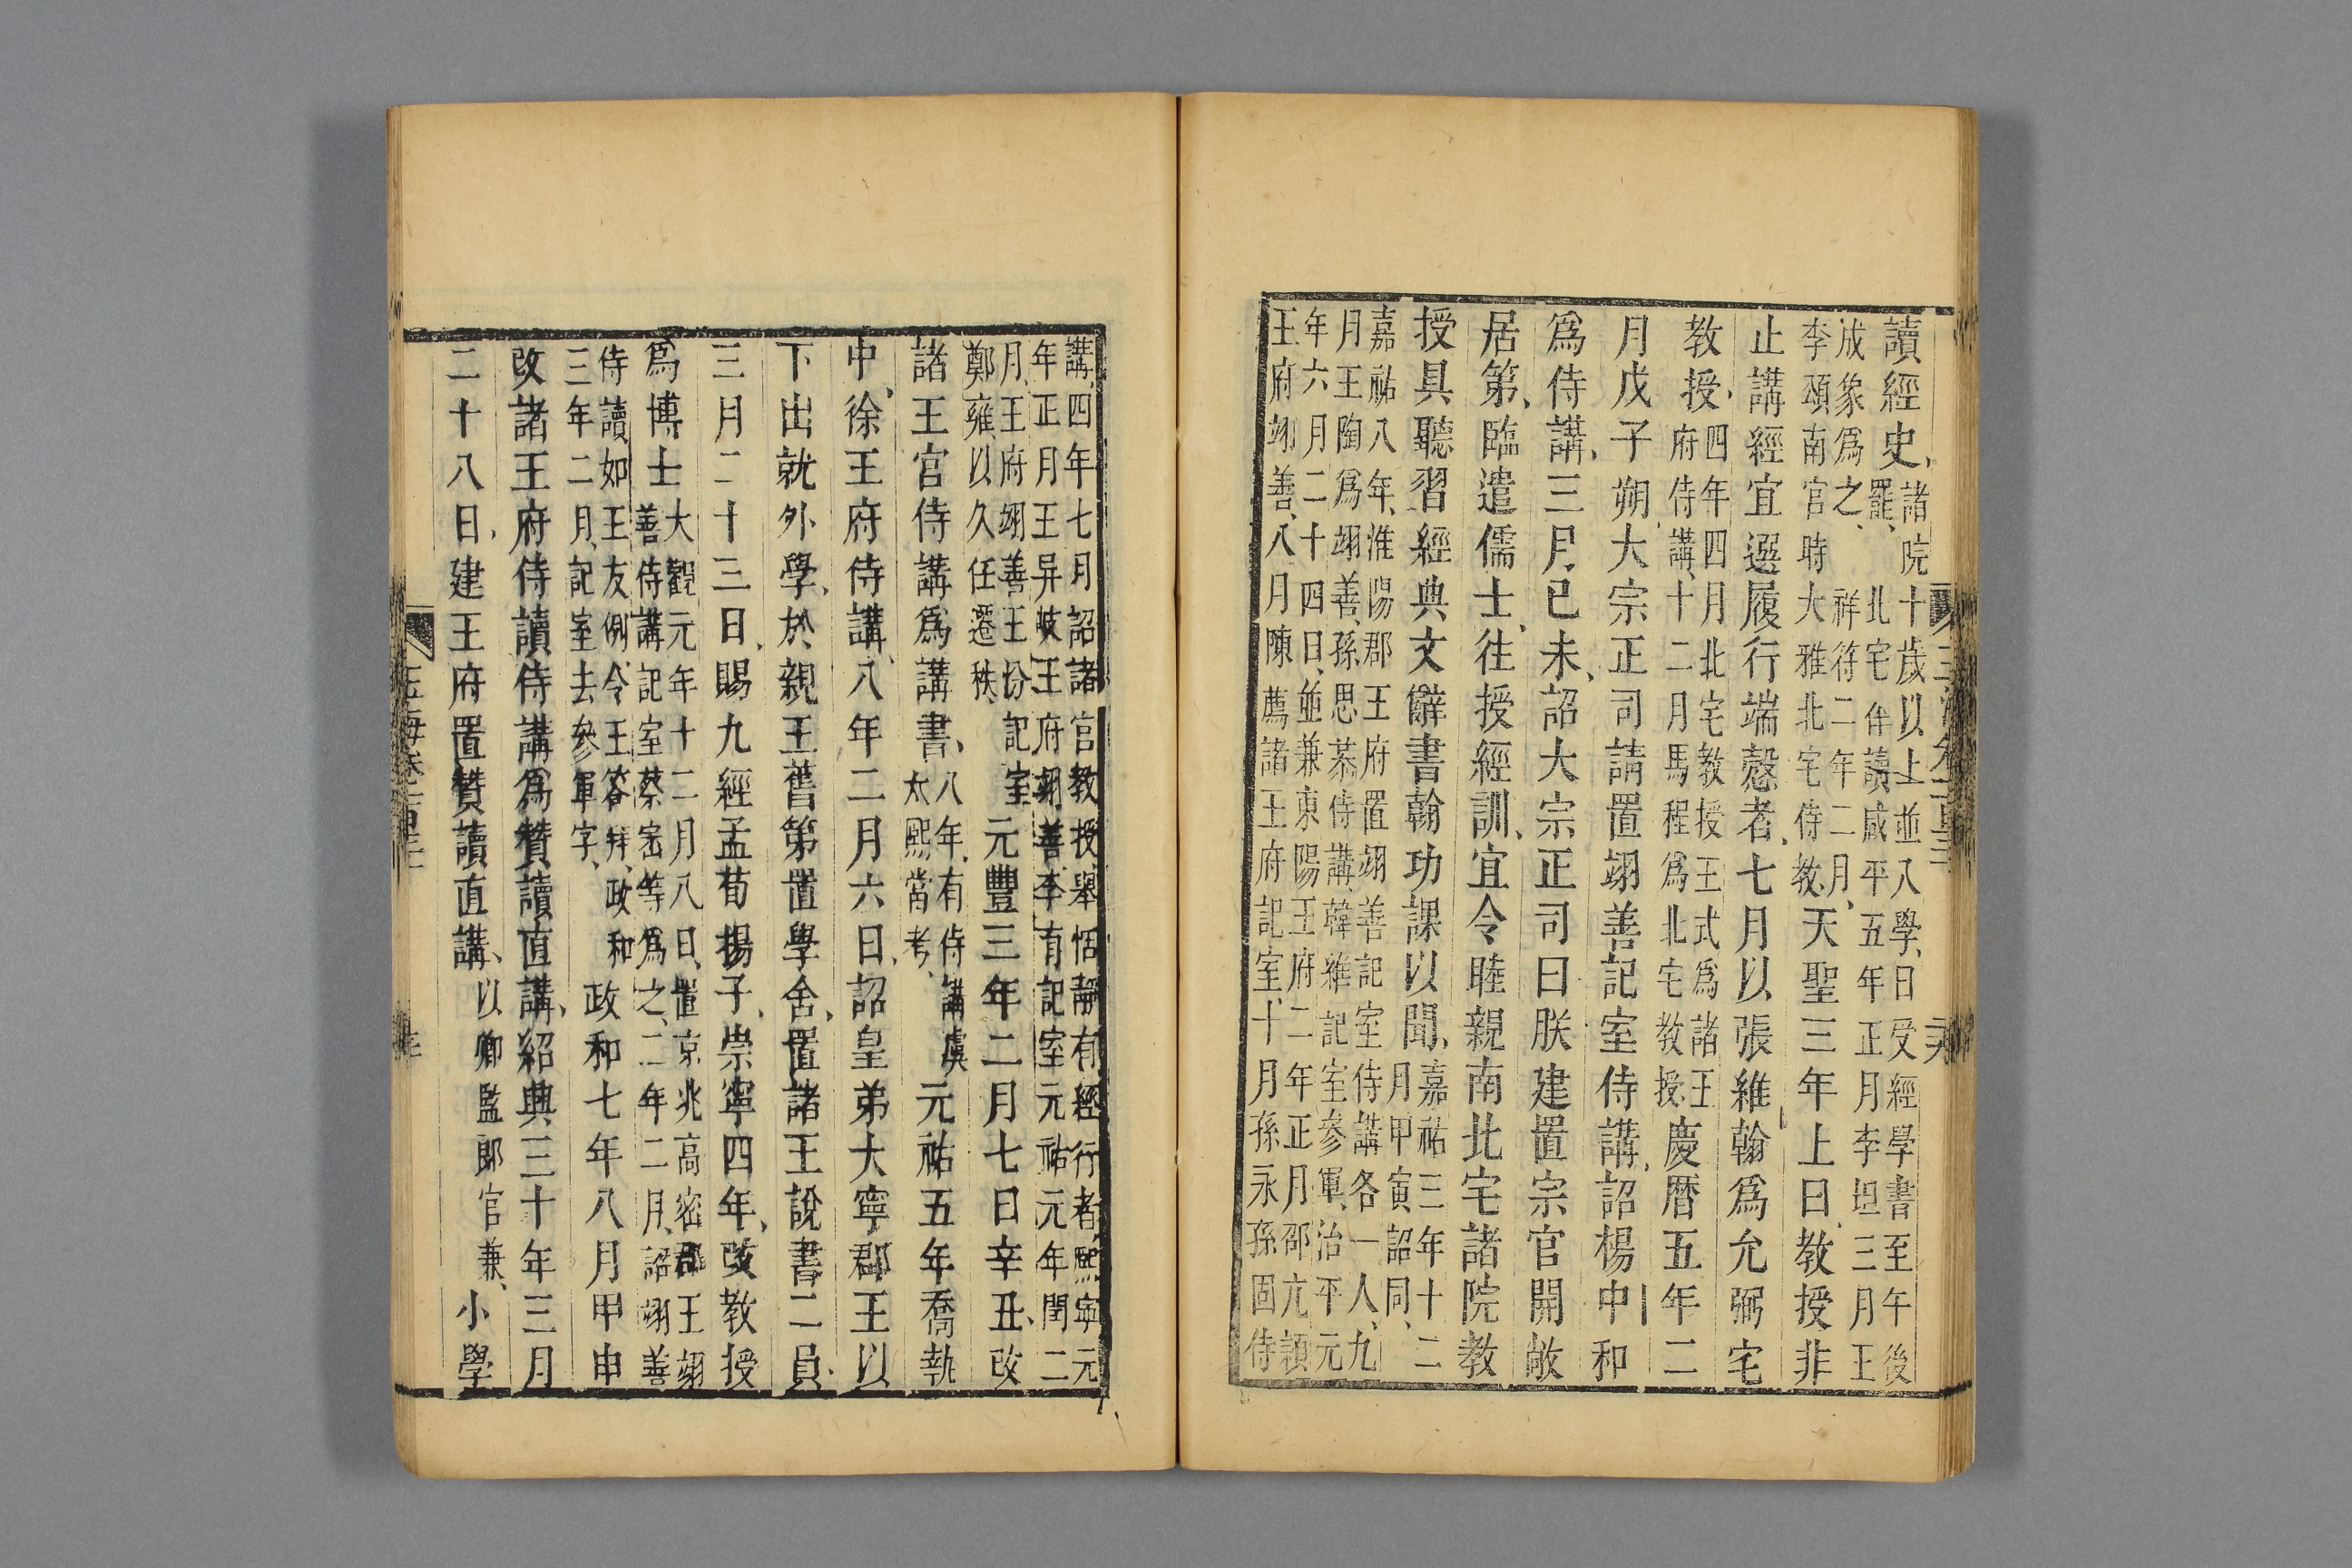 讀經史諸院十歲以上並八學日受經學書至午後
罷北宅伴讀咸平五年正月李坦三月王
成象爲之祥符二年二月
李頌南宮時大雅北宅侍教天聖三年上曰教授非
止講經宜選履行端愨者七月以張維翰爲允弼宅
教授四年四月北宅教授王式爲諸王
府侍講十二月馬程爲北宅教授慶曆五年二
月戊子朔大宗正司請置翊善記室侍講詔楊中和
爲侍講三月己未詔大宗正司曰朕建置宗官開敞
居第臨遣儒士往授經訓宜令睦親南北宅諸院教
授具聽習經典文辭書翰功課以聞嘉祐三年十二
月甲寅詔同
嘉祐八年淮陽郡王府置翊善記室侍講各一人九
月王陶爲翊善孫思恭侍講韓維記室參軍治平元
年六月二十四日並兼東陽王府二年正月邵亢潁
王府翊善八月陳薦諸王府記室十月孫永孫固侍
講四年七月詔諸宮教授舉恬靜有經行者熙寧元
年正月王异岐王府翊善李有記室元祐元年閏二
月王府翊善王汾記室
鄭雍以久任遷秩元豐三年二月七日辛丑改
諸王宮侍講爲講書八年有侍講虞
太熙當考元祐五年喬執
中徐王府侍講八年二月六日詔皇弟大寧郡王以
下出就外學於親王舊第置學舍置諸王說書二員
三月二十三日賜九經孟荀揚子崇寧四年改教授
爲博士大觀元年十二月八日置京兆高密郡王翊
善侍講記室蔡密等爲之二年二月詔翊善
侍讀如王友例令王答拜政和
三年二月記室去參軍字政和七年八月甲申
改諸王府侍讀侍講爲贊讀直講紹興三十年三月
二十八日建王府置贊讀直講以卿監郎官兼小學